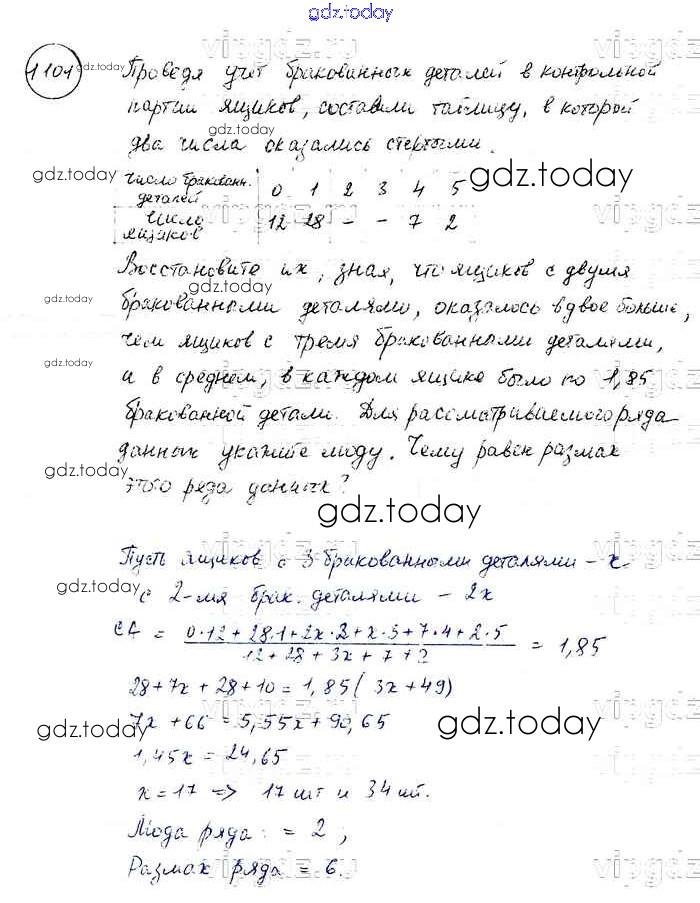 gdz.today
1101
Проведя учет бракованных деталей в контрольной
партии ящиков, составили таблицу, в которой
два числа оказались стертыми.
число бракованн. деталей 0 1 2 3 4 5
число ящиков 12 28 - - 7 2
Восстановите их, зная, что ящиков с двумя
бракованными деталями, оказалось вдвое больше,
чем ящиков с тремя бракованными деталями,
и в среднем, в каждом ящике было по 1,85
бракованной детали. Для рассматриваемого ряда
данных укажите моду. Чему равен размах
этого ряда данных?
Пусть ящиков с 3 бракованными деталями - x
с 2-мя брак. деталями - 2x
СА = 0·12 + 28·1 + 2x·2 + x·3 + 7·4 + 2·5 / 12 + 28 + 3x + 7 + 2 = 1,85
28 + 7x + 28 + 10 = 1,85 (3x + 49)
7x + 66 = 5,55x + 90,65
1,45x = 24,65
x = 17 => 17 шт и 34 шт.
Мода ряда: = 2;
Размах ряда = 6.
gdz.today
gdz.today
gdz.today
gdz.today
gdz.today
gdz.today
gdz.today
gdz.today
gdz.today
gdz.today
gdz.today
gdz.today
gdz.today
vipgdz.ru